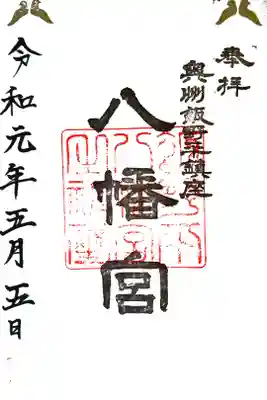 奉拝
奥州飯野平鎮座
八幡宮
令和元年五月五日